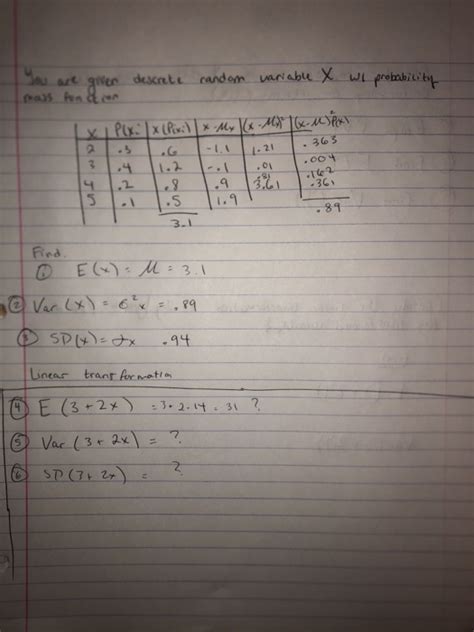 You are given descrete random variable X w/ probability
mass function
X | P(xi) | x(P(xi)) | x-μx | (x-μx)² | (x-μ)²P(x)
2 | .3 | .6 | -1.1 | 1.21 | .363
3 | .4 | 1.2 | -.1 | .01 | .004
4 | .2 | .8 | .9 | .81 | .162
5 | .1 | .5 | 1.9 | 3.61 | .361
3.1 .89
Find.
① E(x) = μ = 3.1
② Var(x) = σ²x = .89
③ SD(x) = σx .94
Linear transformation
④ E (3+2x) = 3+2.14 = 31 ?
⑤ Var (3+2x) = ?
⑥ SD(3+2x) = ?